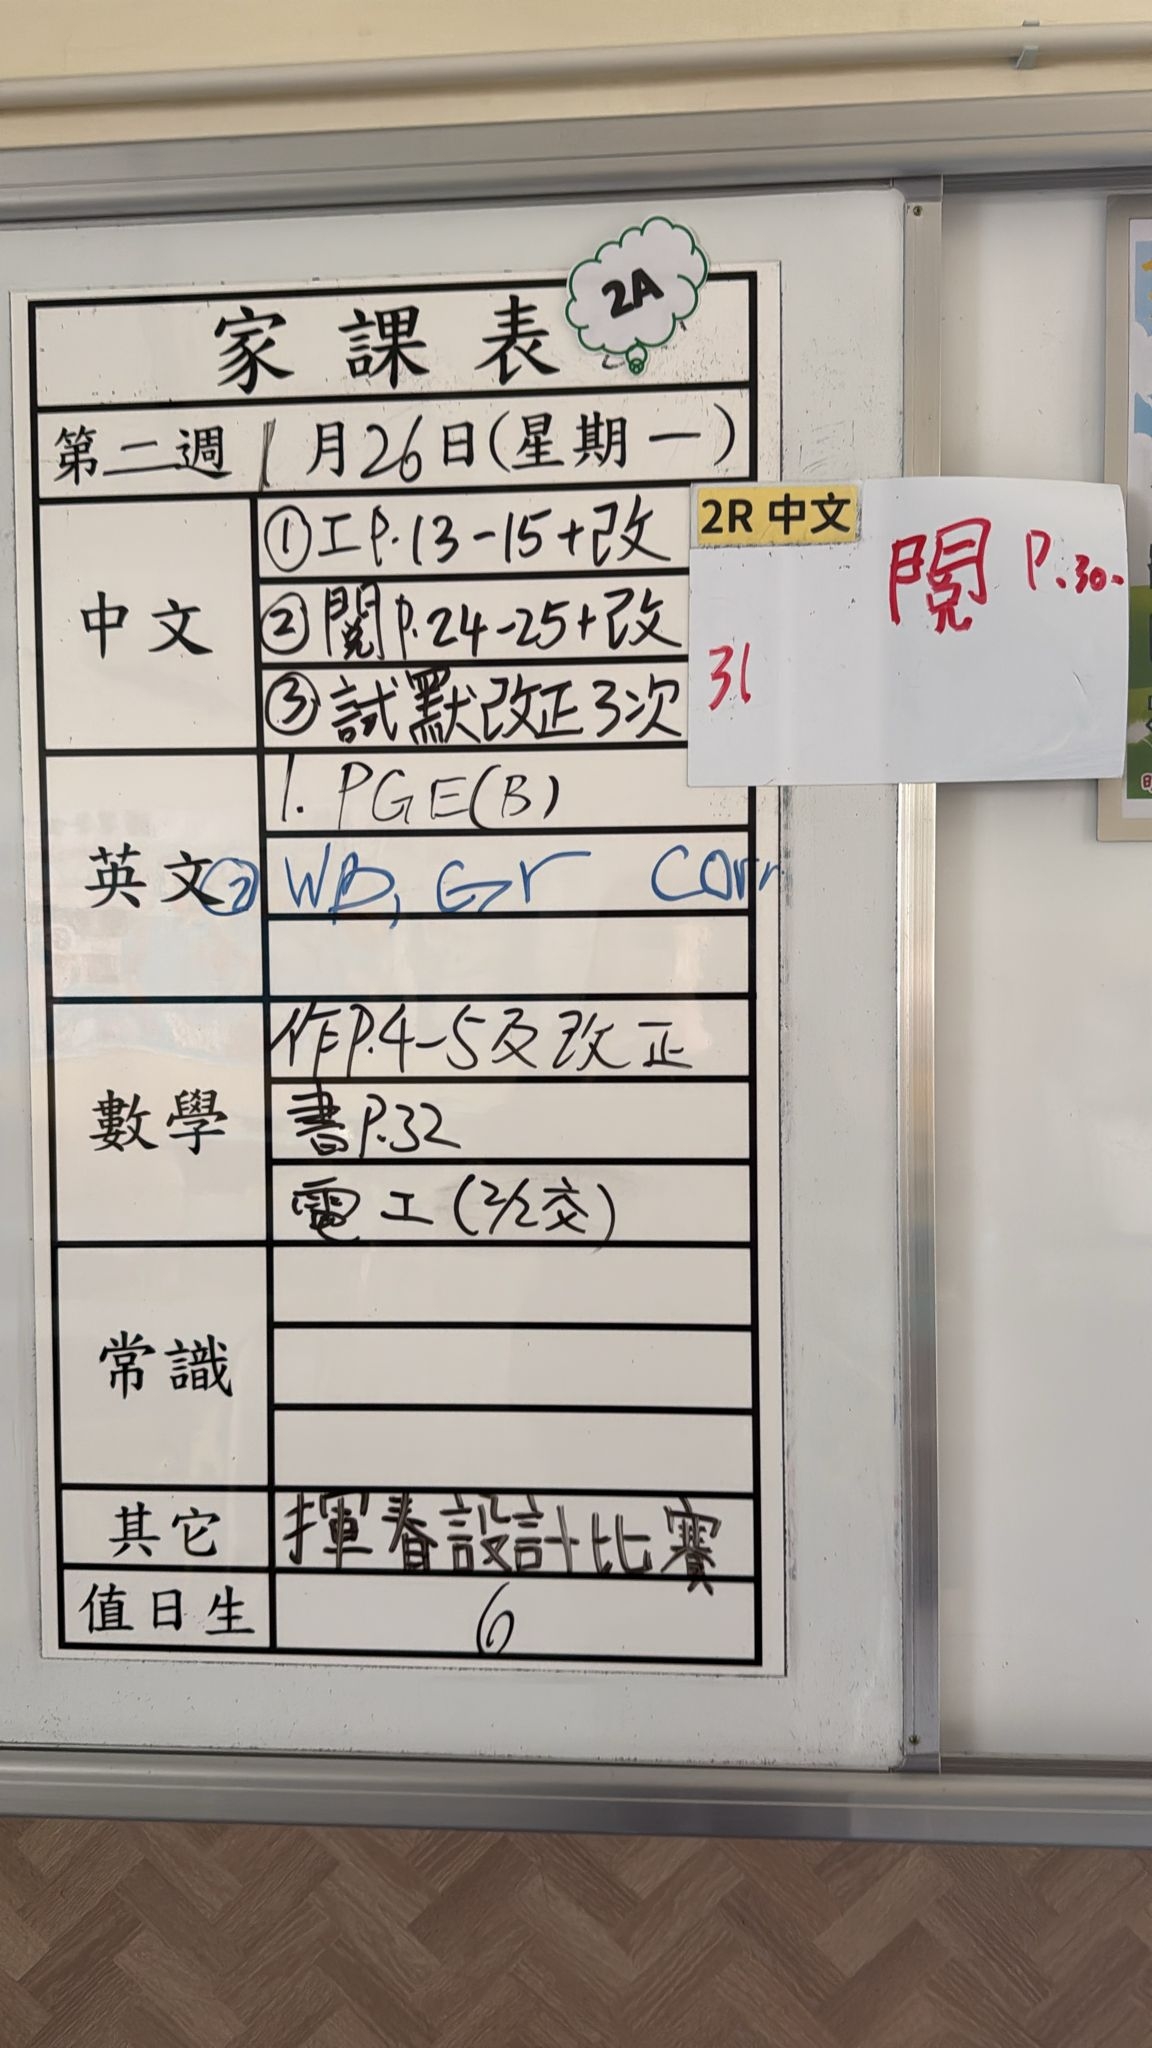 2A
家課表
第二週 1月26日(星期一)
中文
①工P.13-15+改
②閱P.24-25+改
③試默改正3次
2R 中文
閱 P.30-
31
英文
1. PGE(B)
② WB, Gr Corr
數學
作P.4-5及改正
書P.32
電工(2/2交)
常識
其它
揮春設計比賽
值日生
6